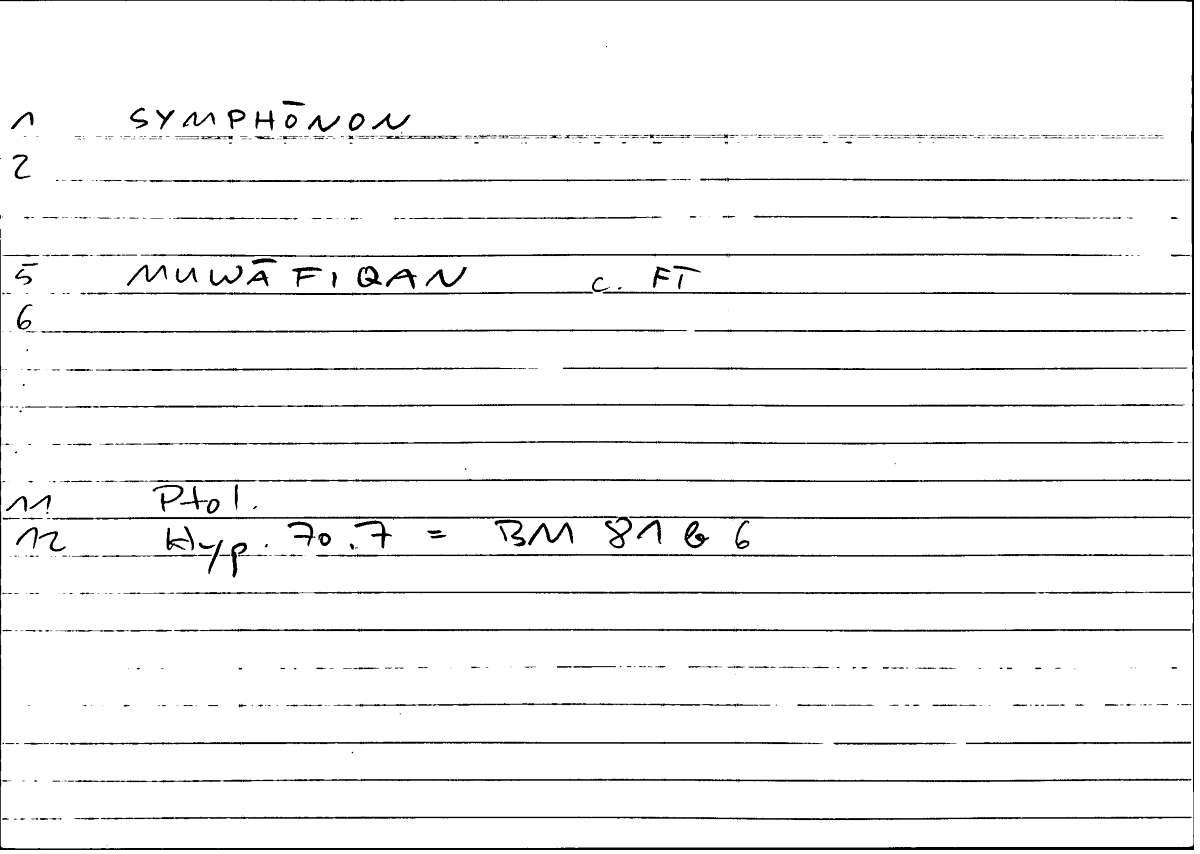 1 SYMPHŌNON
2
5 MUWĀFIQAN c. FĪ
6
.
.
.
.
11 Ptol.
12 Hyp. 70.7 = BM 81 b 6